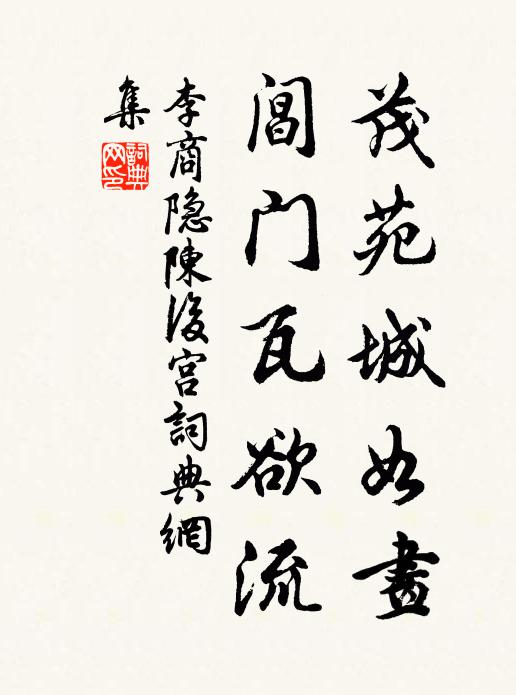 茂苑城如畫
閶门瓦欲流
李商隐陳後宫詞典網
集
詞典网印